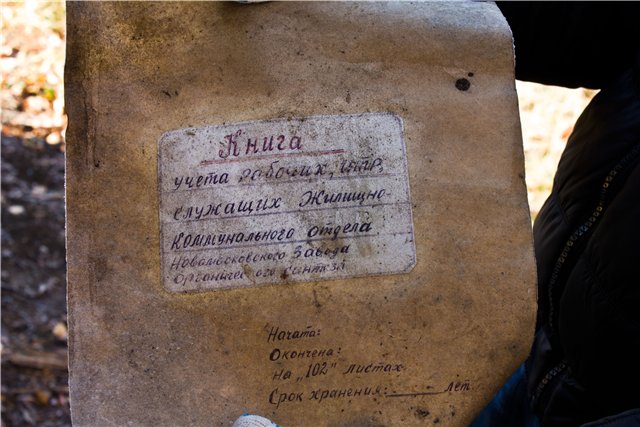 Книга
учета рабочих, итр,
служащих Жилищно-
Коммунального отдела
Новомосковского Завода
Органического синтеза
Начата:
Окончена:
на „102" листах.
Срок хранения: ______ лет.